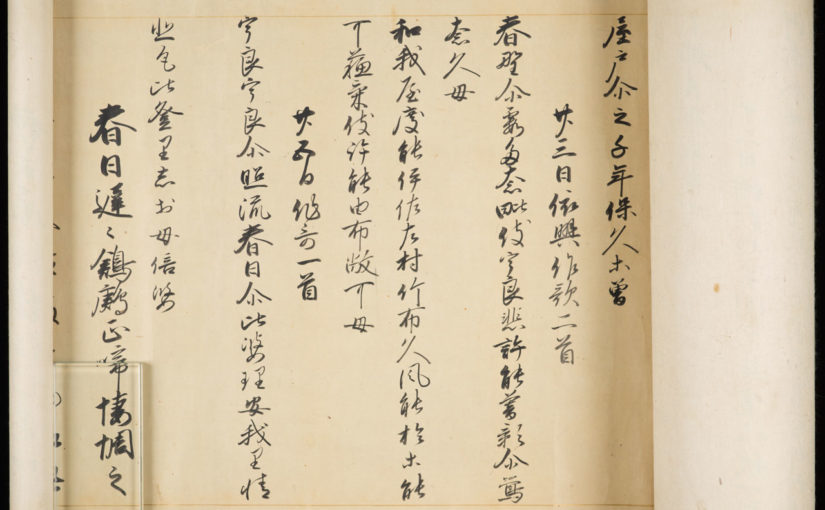 屋戸尓之千年保久等曽
廿三日依興作歌二首
春野尓霞多奈毗伎宇良悲許能暮影尓鶯
奈久母
和我屋度能伊佐左村竹布久風能於等能
可蘇氣伎許能由布敝可母
廿五日作哥一首
宇良宇良尓照流春日尓比婆理安我里情
悲毛比登里志於母倍婆
春日遅々鶬鶊正啼悽惆之